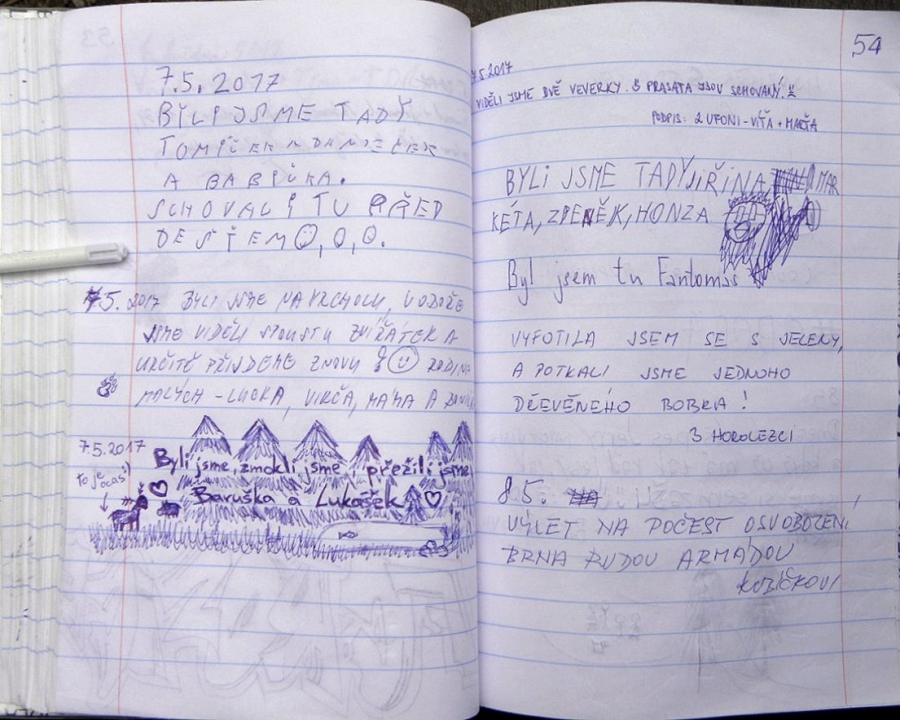 7.5. 2017
BYLI JSME TADY
TOMÍČEK
A BABIČKA.
SCHOVALI TU PŘED
DEŠTEM
7.5. 2017 BYLI JSME NA VRCHOLU, V OBOŘE
JSME VIDĚLI SPOUSTU ZVÍŘÁTEK A
URČITĚ PŘIJDEME ZNOVU RODINA
MALÝCH - LUCKA, VIKČA, MÁMA A
7.5.2017
to je ocas :)
Byli jsme, zmokli jsme přežili jsme
Baruška a Lukášek
54
7.5.2017
VIDĚLI JSME DVĚ VEVERKY. PRASATA JSOU SCHOVANÝ.
PODPIS: 2 UFONI - VÍŤA + MARŤA
BYLI JSME TADY JIŘINA, MAR
KÉTA, ZDENĚK, HONZA
Byl jsem tu Fantomas
VYFOTILA JSEM SE S JELENY,
A POTKALI JSME JEDNOHO
DŘEVĚNÉHO BOBRA!
3 HOROLEZCI
8.5.
VÝLET NA POČEST OSVOBOZENÍ
BRNA RUDOU ARMÁDOU